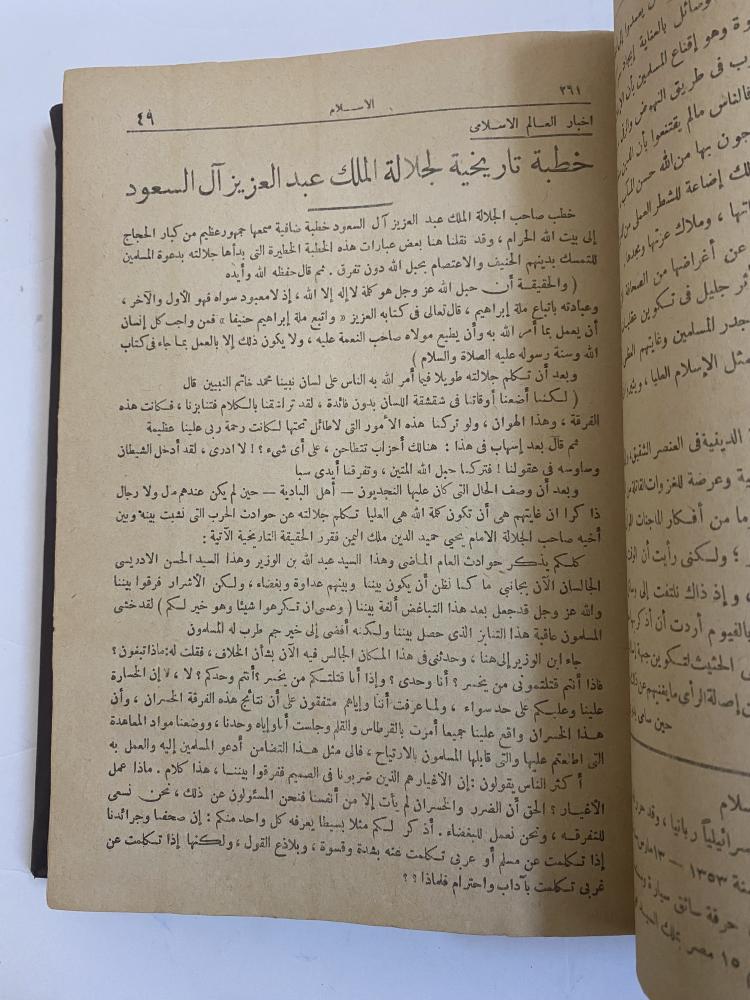 ٣٦١
الاسلام
٤٩
اخبار العالم الاسلامى
خطبة تاريخية لجلالة الملك عبد العزيز آل السعود
خطب صاحب الجلالة الملك عبد العزيز آل السعود خطبة ضافية سمعها جمهور عظيم من كبار الحجاج
إلى بيت الله الحرام ، وقد نقلنا هنا بعض عبارات هذه الخطبة الخطيرة التى بدأها جلالته بدعوة المسلمين
للتمسك بدينهم الحنيف والاعتصام بحبل الله دون تفرق . ثم قال حفظه الله وأيده
( والحقيقة أن حبل الله عز وجل هو كلمة لا إله إلا الله ، إذ لا معبود سواه فهو الأول والآخر ،
وعبادته باتباع ملة إبراهيم ، قال تعالى فى كتابه العزيز « واتبع ملة إبراهيم حنيفا » فمن واجب كل إنسان
أن يعمل بما أمر الله به وأن يطيع مولاه صاحب النعمة عليه ، ولا يكون ذلك إلا بالعمل بما جاء فى كتاب
الله وسنة رسوله عليه الصلاة والسلام )
وبعد أن تكلم جلالته طويلا فيما أمر الله به الناس على لسان نبينا محمد خاتم النبيين قال
( لكننا أضعنا أوقاتنا فى شقشقة اللسان بدون فائدة ، لقد تراشقنا بالكلام فتنابزنا ، فكانت هذه
الفرقة ، وهذا الهوان ، ولو تركنا هذه الأمور التى لا طائل تحتها لكانت رحمة ربى علينا عظيمة
ثم قال بعد إسهاب فى هذا : هنالك أحزاب تتطاحن ، على أى شىء ؟ ! لا ادرى ، لقد أدخل الشيطان
وساوسه فى عقولنا ! فتركنا حبل الله المتين ، وتفرقنا أيدى سبا
وبعد أن وصف الحال التى كان عليها النجديون — أهل البادية — حين لم يكن عندهم مال ولا رجال
ذا كرا ان غايتهم هى أن تكون كلمة الله هى العليا تكلم جلالته عن حوادث الحرب التى نشبت بينه وبين
أخيه صاحب الجلالة الامام يحيى حميد الدين ملك اليمن فقرر الحقيقة التاريخية الآتية :
كلكم يذكر حوادث العام الماضى وهذا السيد عبد الله بن الوزير وهذا السيد الحسن الادريسى
الجالسان الآن بجانبي ما كنا نظن أن يكون بيننا وبينهم عداوة وبغضاء ، ولكن الأشرار فرقوا بيننا
والله عز وجل قد جعل بعد هذا التباغض ألفة بيننا ( وعسى ان تكرهوا شيئا وهو خير لكم ) لقد خشى
المسلمون عاقبة هذا التنابز الذى حصل بيننا ولكنه أفضى إلى خير جم طرب له المسلمون
جاء ابن الوزير إلى هنا ، وحدثنى فى هذا المكان الجالس فيه الآن بشأن الخلاف ، فقلت له : ماذا تبغون ؟
فاذا أنتم قتلتمونى من يخسر ؟ أنا وحدى ؟ وإذا أنا قتلتكم من يخسر ؟ أنتم وحدكم ؟ لا ، لا إن الخسارة
علينا وعليكم على حد سواء ، ولما عرفت أننا وإياهم متفقون على أن نتائج هذه الفرقة الخسران ، وأن
هذا الخسران واقع علينا جميعا أمرت بالقرطاس والقلم وجلست أنا وإياه وحدنا ، ووضعنا مواد المعاهدة
التى اطلعتم عليها والتى قابلها المسلمون بالارتياح ، فالى مثل هذا التضامن أدعو المسلمين إليه والعمل به
أكثر الناس يقولون : إن الأغيار هم الذين ضربونا فى الصميم ففرقوا بيننا ، هذا كلام . ماذا عمل
الأغيار ؟ الحق أن الضرر والخسران لم يأت إلا من أنفسنا فنحن المسئولون عن ذلك ، نحن نسعى
للتفرقه ، ونحن نعمل للبغضاء . أذكر لكم مثلا بسيطا يعرفه كل واحد منكم : إن صحفنا وجرائدنا
إذا تكلمت عن مسلم أو عربى تكلمت عنه بشدة وقسوة ، وبلاذع القول ، ولكنها إذا تكلمت عن
غربى تكلمت بآداب واحترام فلماذا ؟ ؟